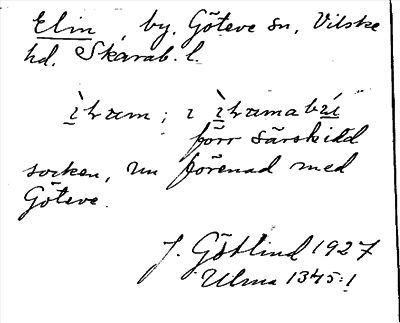 Elin, by. Göteve sn, Vilske
hd. Skarab. l.
förr särskild
socken, nu förenad med
Göteve.
J. Götlind 1927
Ulma 1345:1